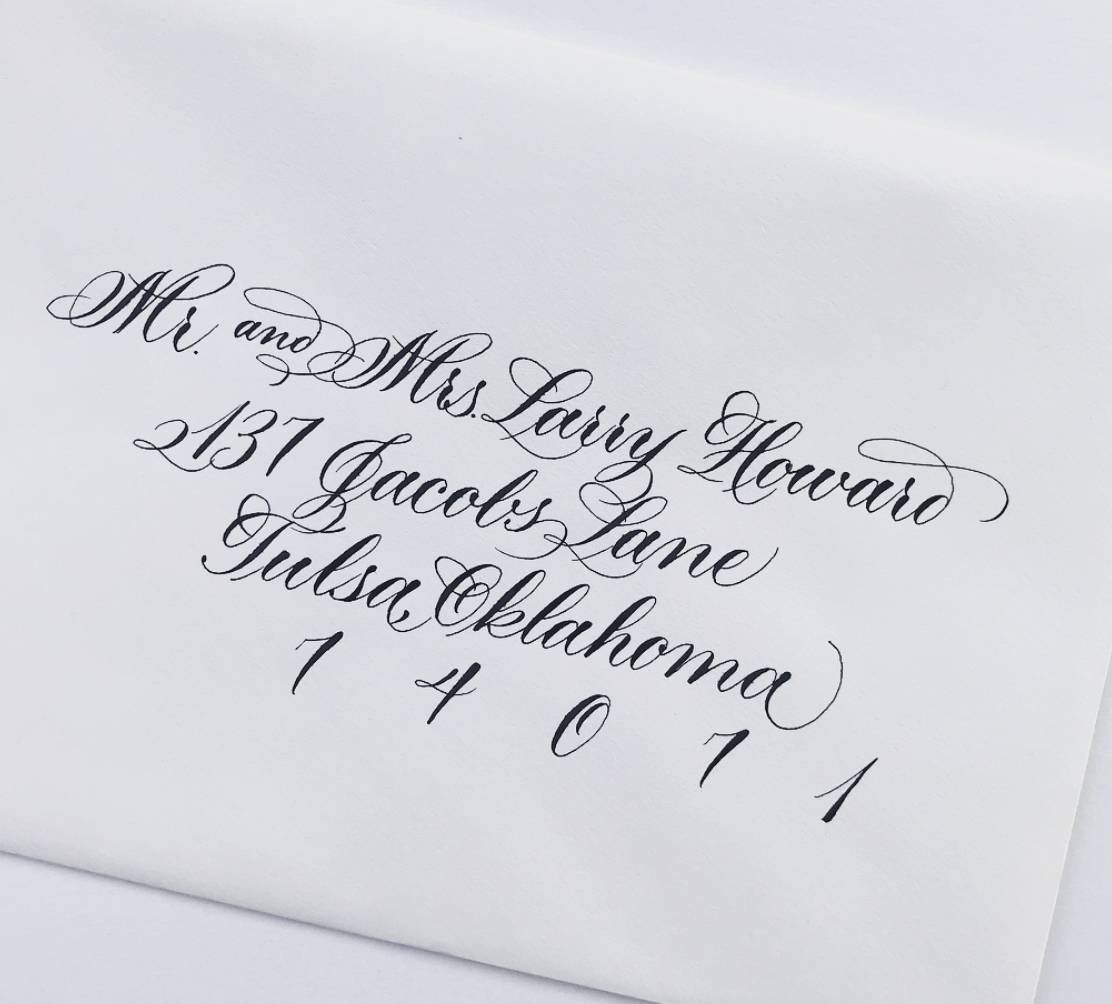 Mr. and Mrs. Larry Howard
2137 Jacobs Lane
Tulsa, Oklahoma
7 4 0 7 1